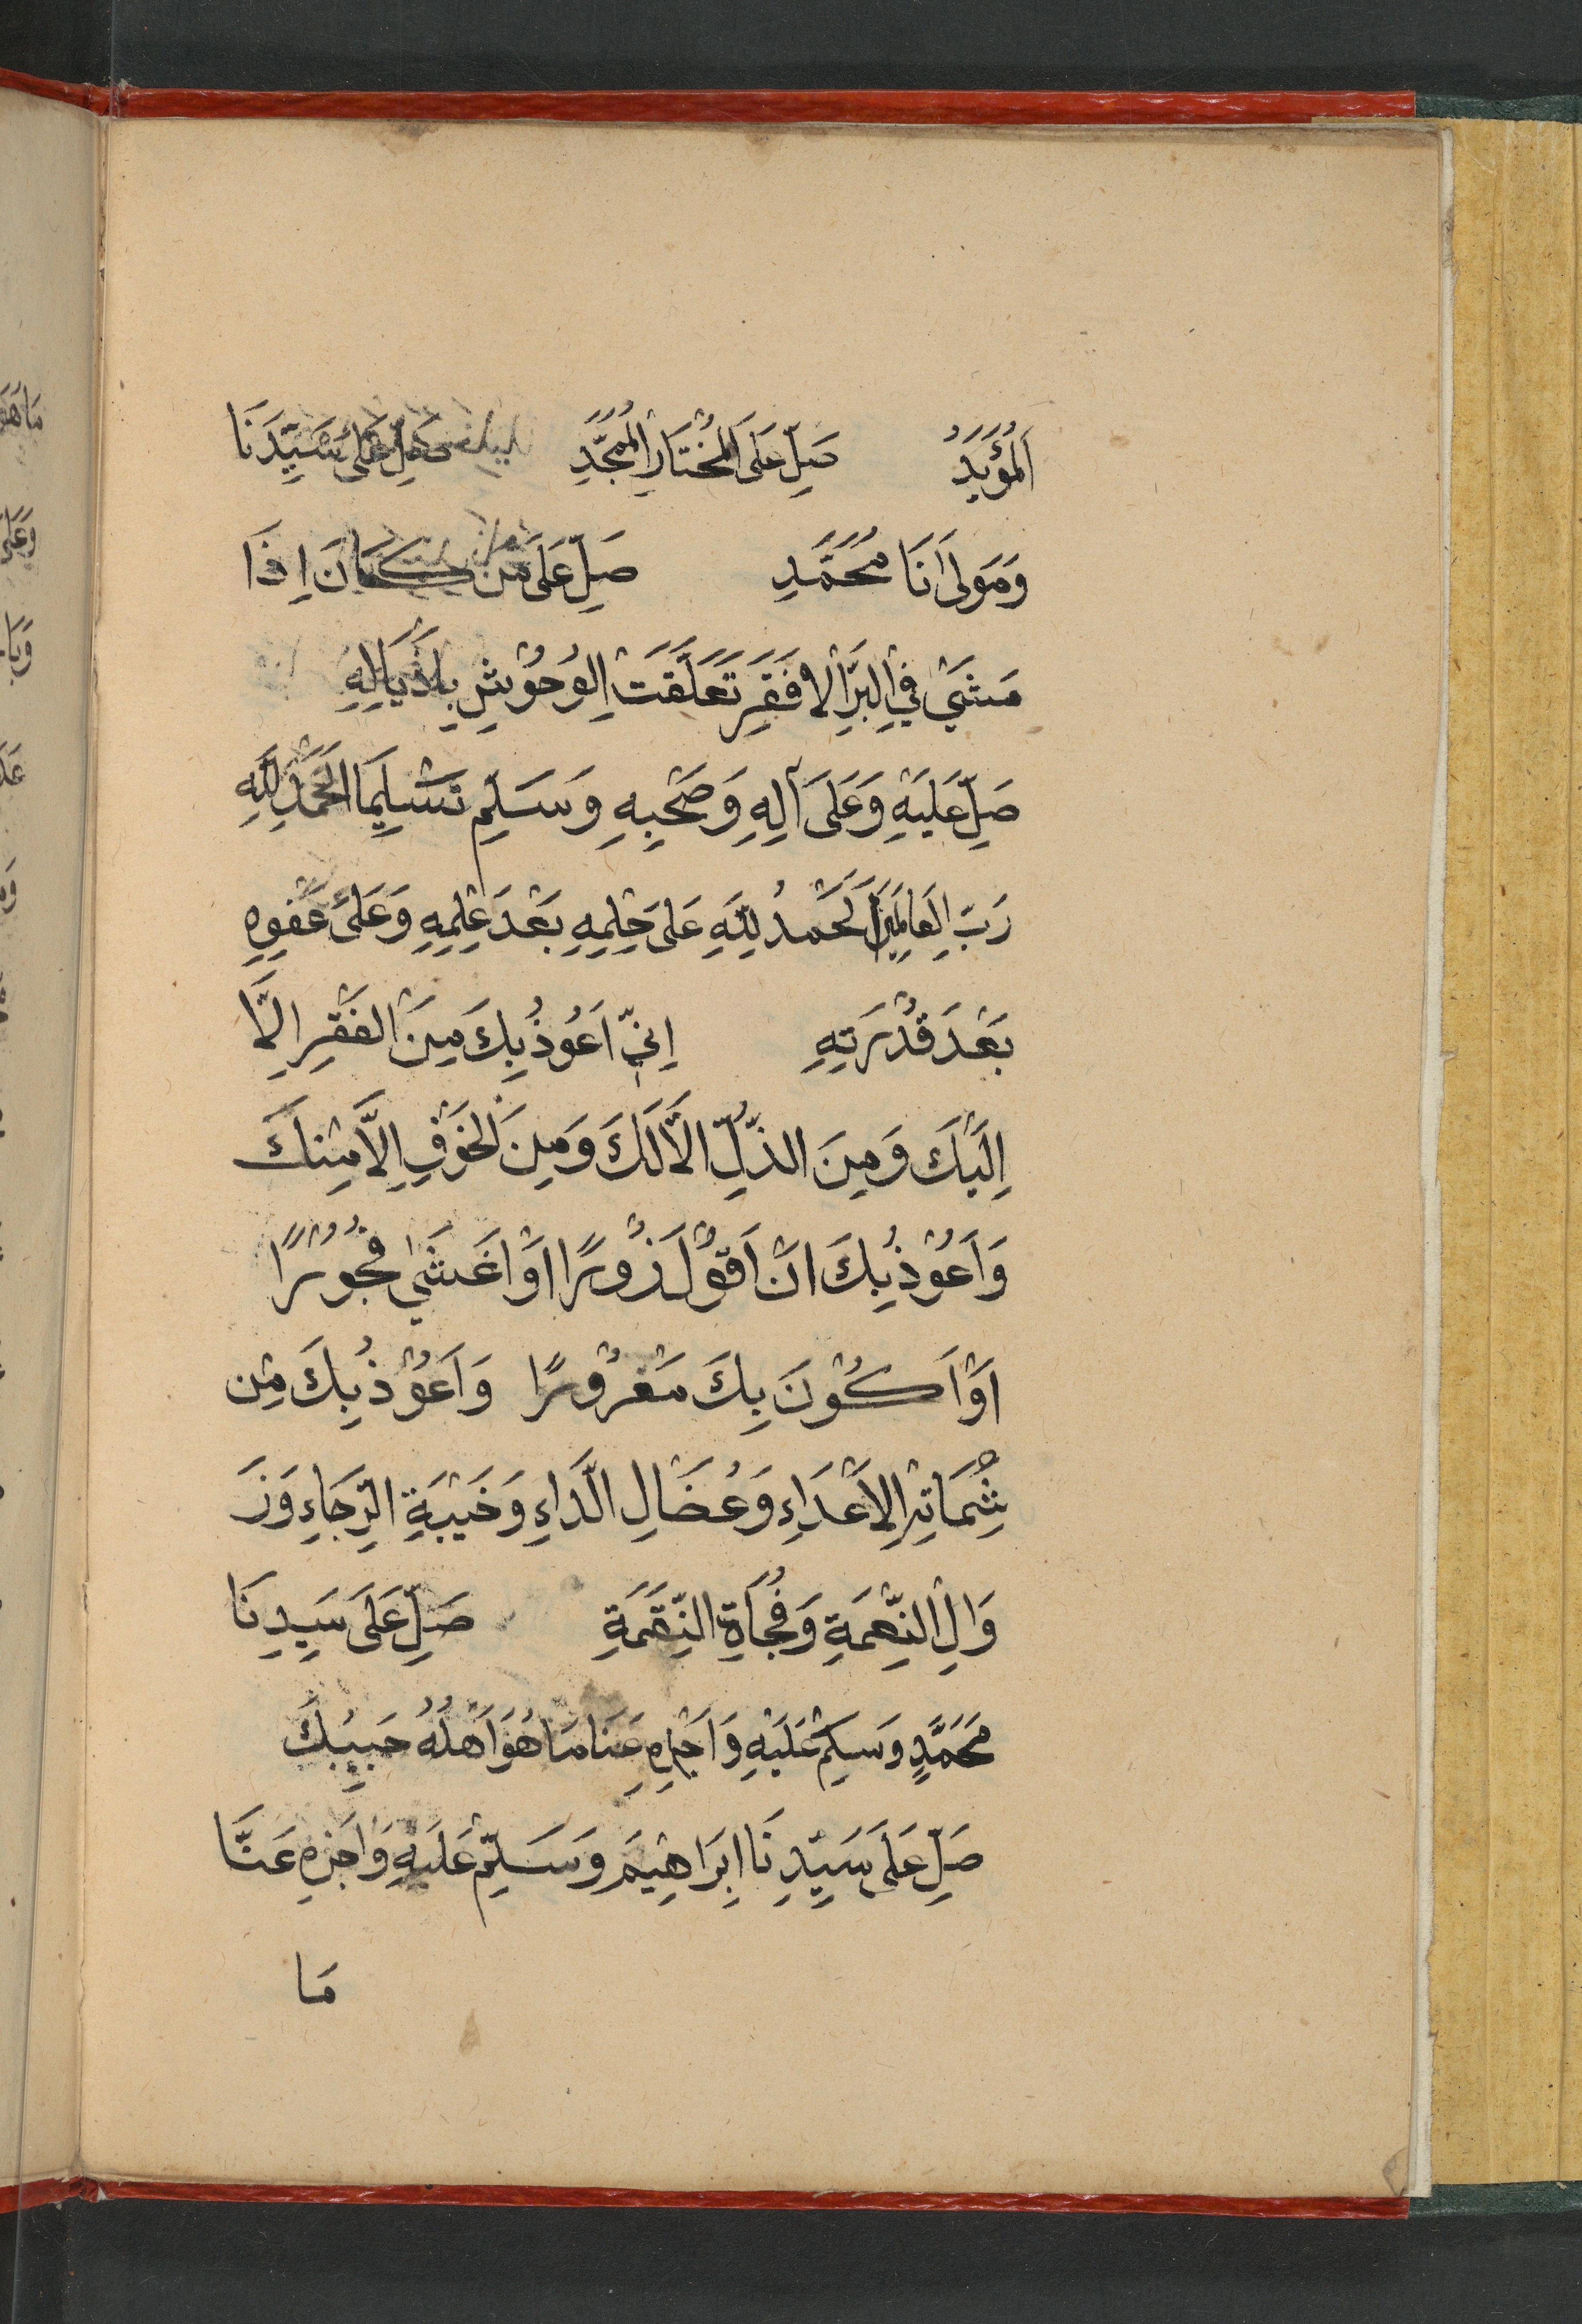 اَلْمُؤَيَّدِ صَلِّ عَلَى الْمُخْتَارِ الْمُمَجَّدِ صَلِّ عَلَى سَيِّدِنَا
وَمَوْلَانَا مُحَمَّدٍ صَلِّ عَلَى مَنْ كَانَ اِذَا
مَشَى فِي الْبَرِّ الْاَقْفَرِ تَعَلَّقَتِ الْوُحُوْشُ بِاَذْيَالِهِ
صَلِّ عَلَيْهِ وَعَلَى آلِهِ وَصَحْبِهِ وَسَلِّمْ تَسْلِيمًا اَلْحَمْدُ لِلّٰهِ
رَبِّ الْعَالَمِيْنَ اَلْحَمْدُ لِلّٰهِ عَلَى حِلْمِهِ بَعْدَ عِلْمِهِ وَعَلَى عَفْوِهِ
بَعْدَ قُدْرَتِهِ اِنِّي اَعُوْذُ بِكَ مِنَ الْفَقْرِ اِلَّا
اِلَيْكَ وَمِنَ الذُّلِّ اِلَّا لَكَ وَمِنَ الْخَوْفِ اِلَّا مِنْكَ
وَاَعُوْذُ بِكَ اَنْ اَقُوْلَ زُوْرًا اَوْ اَغْشَى فُجُوْرًا
اَوْ اَكُوْنَ بِكَ مَغْرُوْرًا وَاَعُوْذُ بِكَ مِنْ
شَمَاتَةِ الْاَعْدَاءِ وَعُضَالِ الدَّاءِ وَخَيْبَةِ الرَّجَاءِ وَزَ
وَالِ النِّعْمَةِ وَفُجَاءَةِ النِّقْمَةِ صَلِّ عَلَى سَيِّدِنَا
مُحَمَّدٍ وَسَلِّمْ عَلَيْهِ وَاَجْزِهِ عَنَّا مَا هُوَ اَهْلُهُ حَبِيْبِكَ
صَلِّ عَلَى سَيِّدِنَا اِبْرَاهِيْمَ وَسَلِّمْ عَلَيْهِ وَاَجْزِهِ عَنَّا
مَا